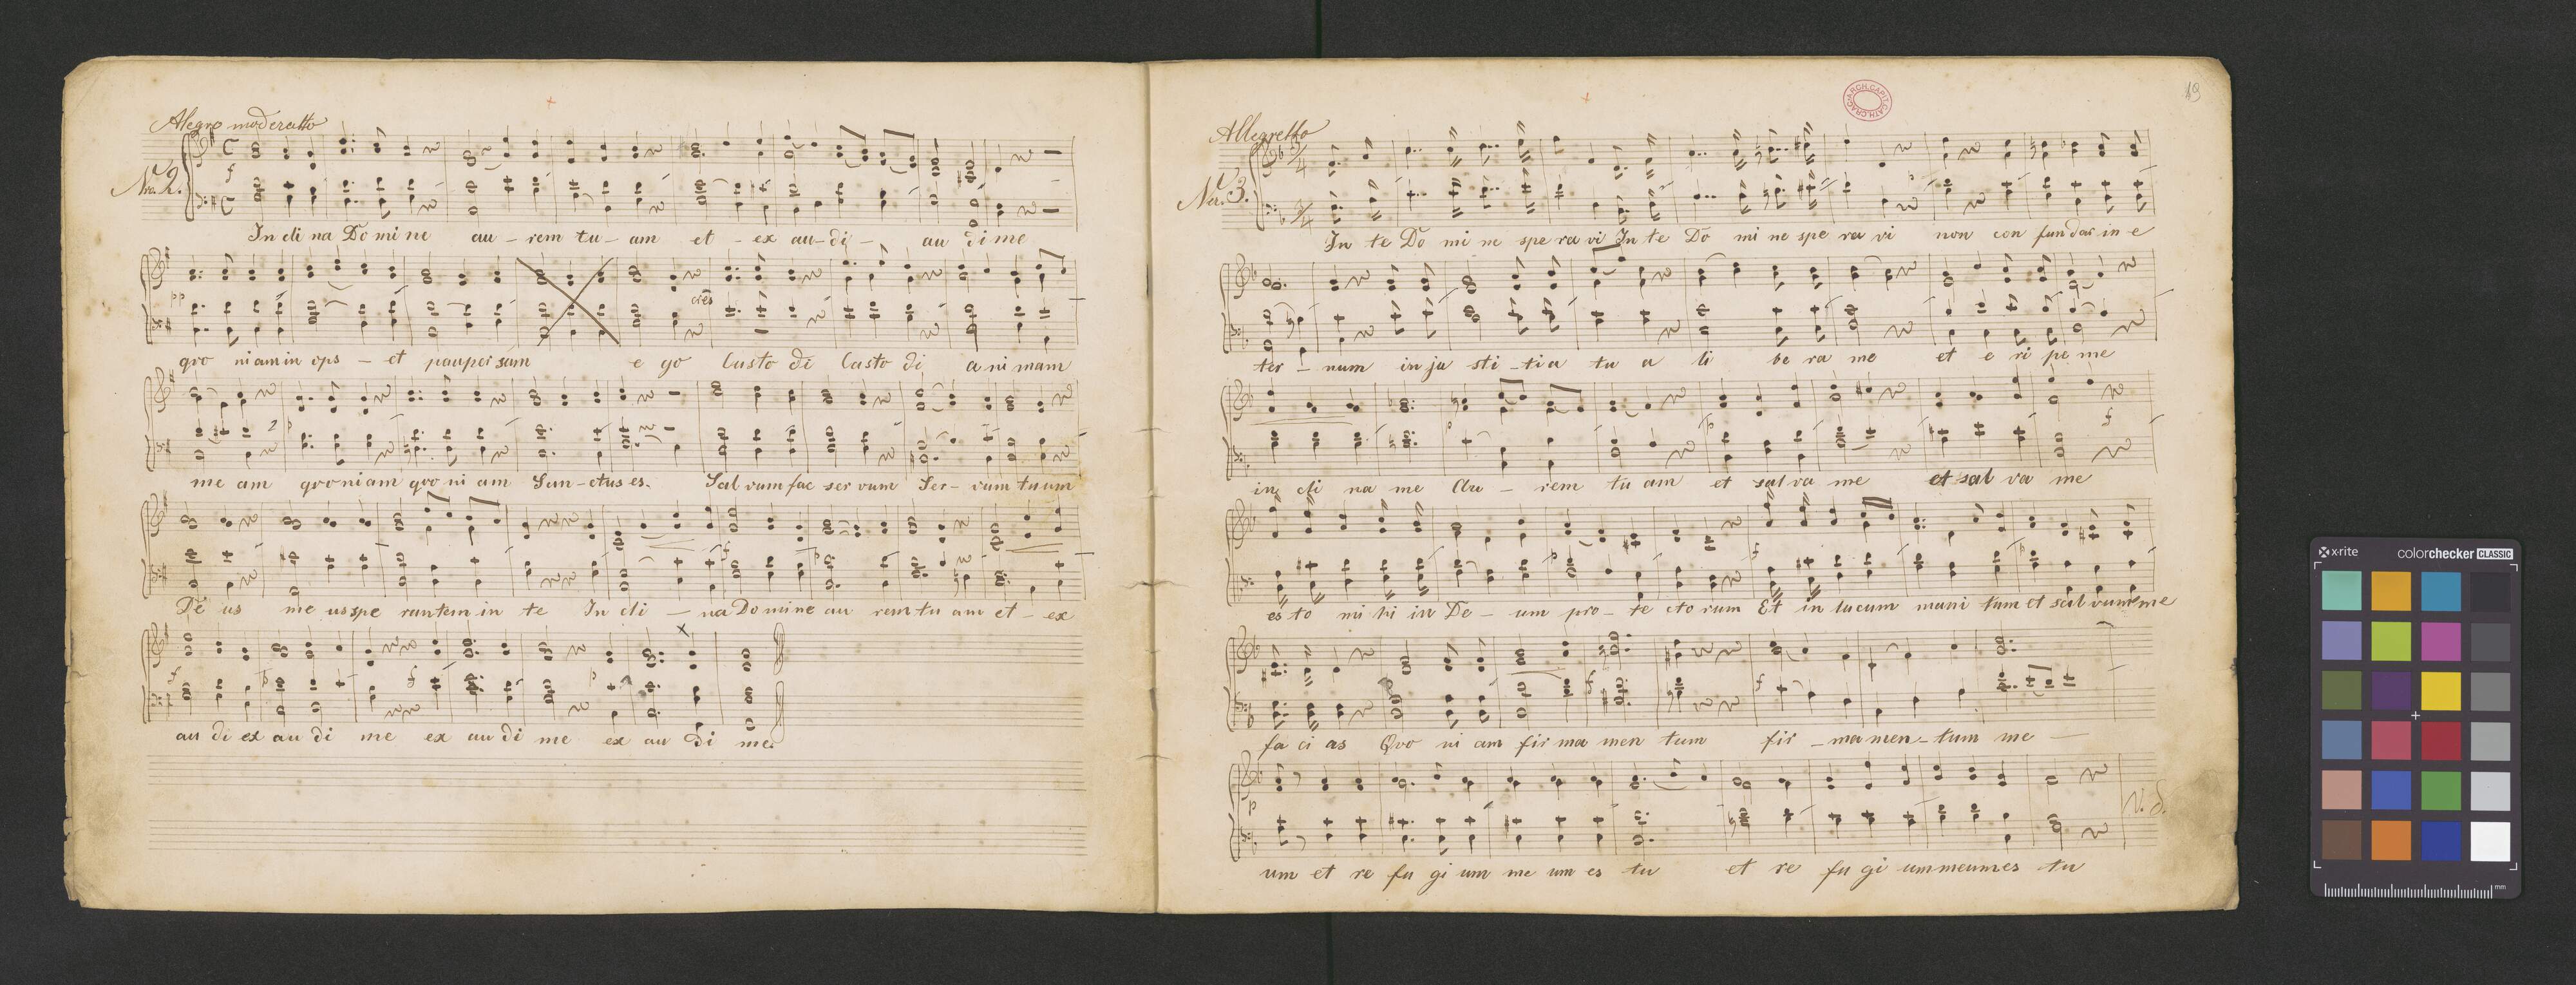 Alegro moderatto
Nro. 2.
In cli na Do mi ne au – rem tu – am et – ex au – di – au di me
qvo ni am in ops – et pauper sum e go Custo di Custo di a ni mam
cres
me am qvoniam qvo ni am San – ctus es. Sal vum fac ser vum Ser – vum tuum
De us me us spe rantem in te In cli – na Domine au rem tu am et – ex
au di ex au di me ex au di me ex au di me.
19
ARCH. CAPIT. CATH. CRAC.
Allegretto
Nro. 3.
In te Do mi ne spe ra vi In te Do mi ne spe ra vi non con fundar in e
ter – num in ju sti – ti a tu a li be ra me et e ri pe me
in cli na me Au – rem tu am et sal va me et sal va me
es to mi hi in De – um pro – te cto rum Et in lucum muni tum et sal vum me
fa ci as Qvo ni am fir ma men tum fir – ma men – tum me –
um et re fu gi um me um es tu et re fu gi um meum es tu
V. S.
x·rite colorchecker CLASSIC
mm